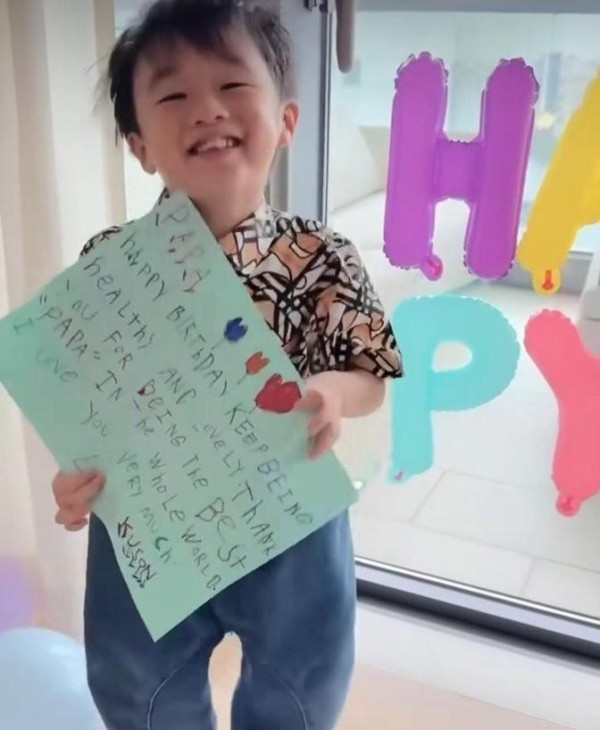 PAPA
HAPPY BIRTHDAY KEEP BEING
healthy AND Lovely THANK
YOU FOR BEING THE BEST
"PAPA" IN The Whole WORLD.
I love You VERY much.
KUSON
HA
PY